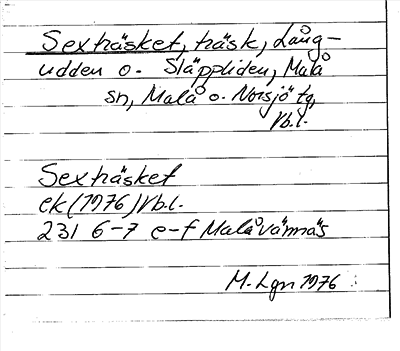 Sexträsket, träsk, Lång-
udden o. Släppliden, Malå
sn, Malå o. Norsjö tg,
Vb.l.
Sexträsket
ek (1976) Vb.l.
231 6-7 e-f Malåvännäs
M. Lgn 1976